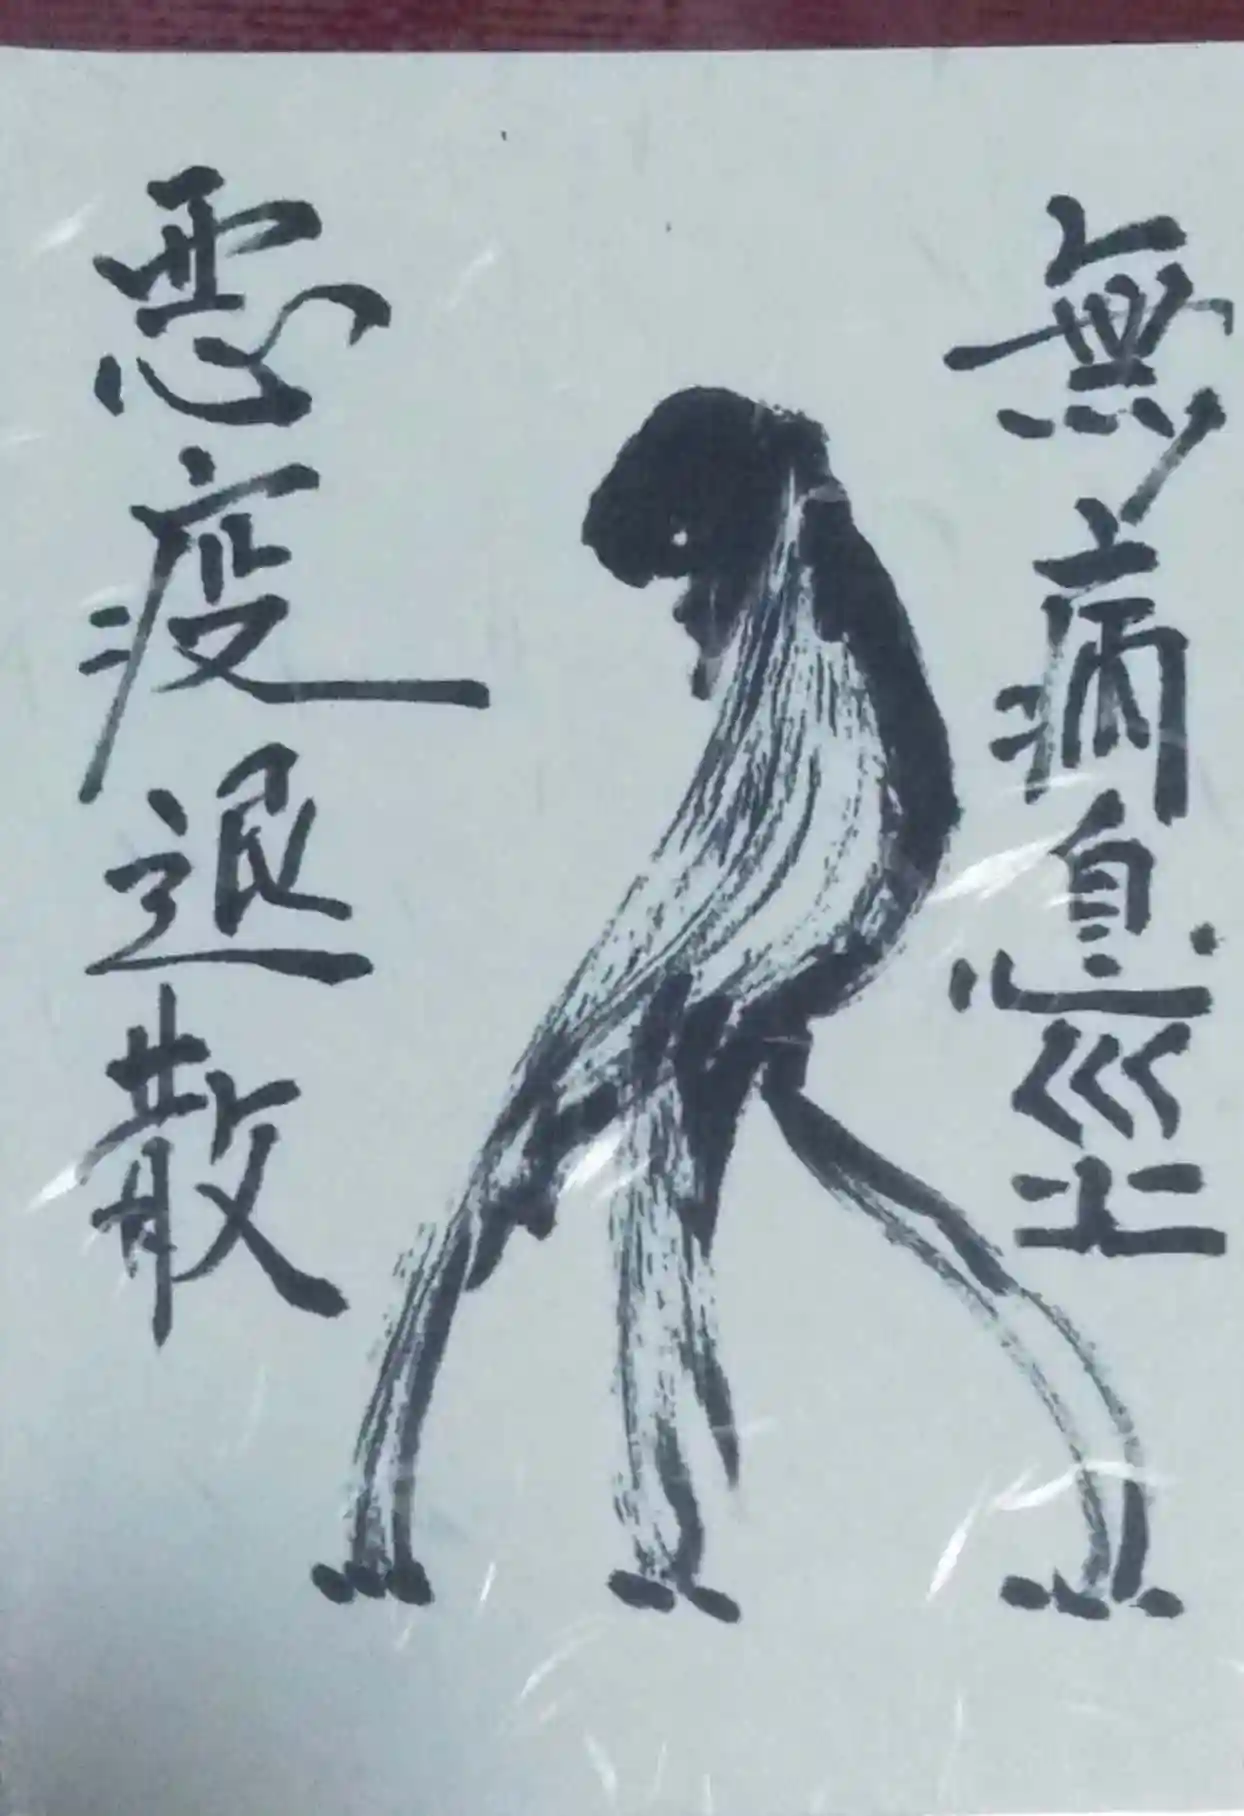 無病息災
悪疫退散